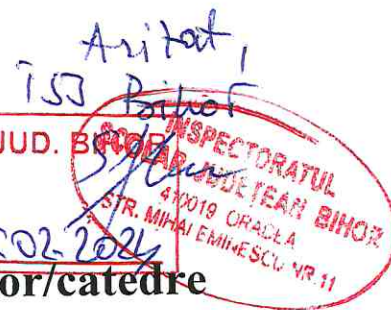 Avizat,
ISJ Bihor
JUD. BIHOR
INSPECTORATUL
ȘCOLAR JUDEȚEAN BIHOR
410019 ORADEA
STR. MIHAI EMINESCU NR.11
02.2024
or/catedre